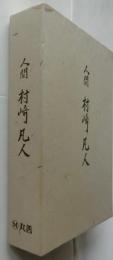 人間 村崎凡人
人間 村崎凡人
丸善